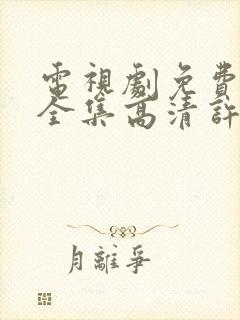 電視劇免費
全集高清許
月離爭